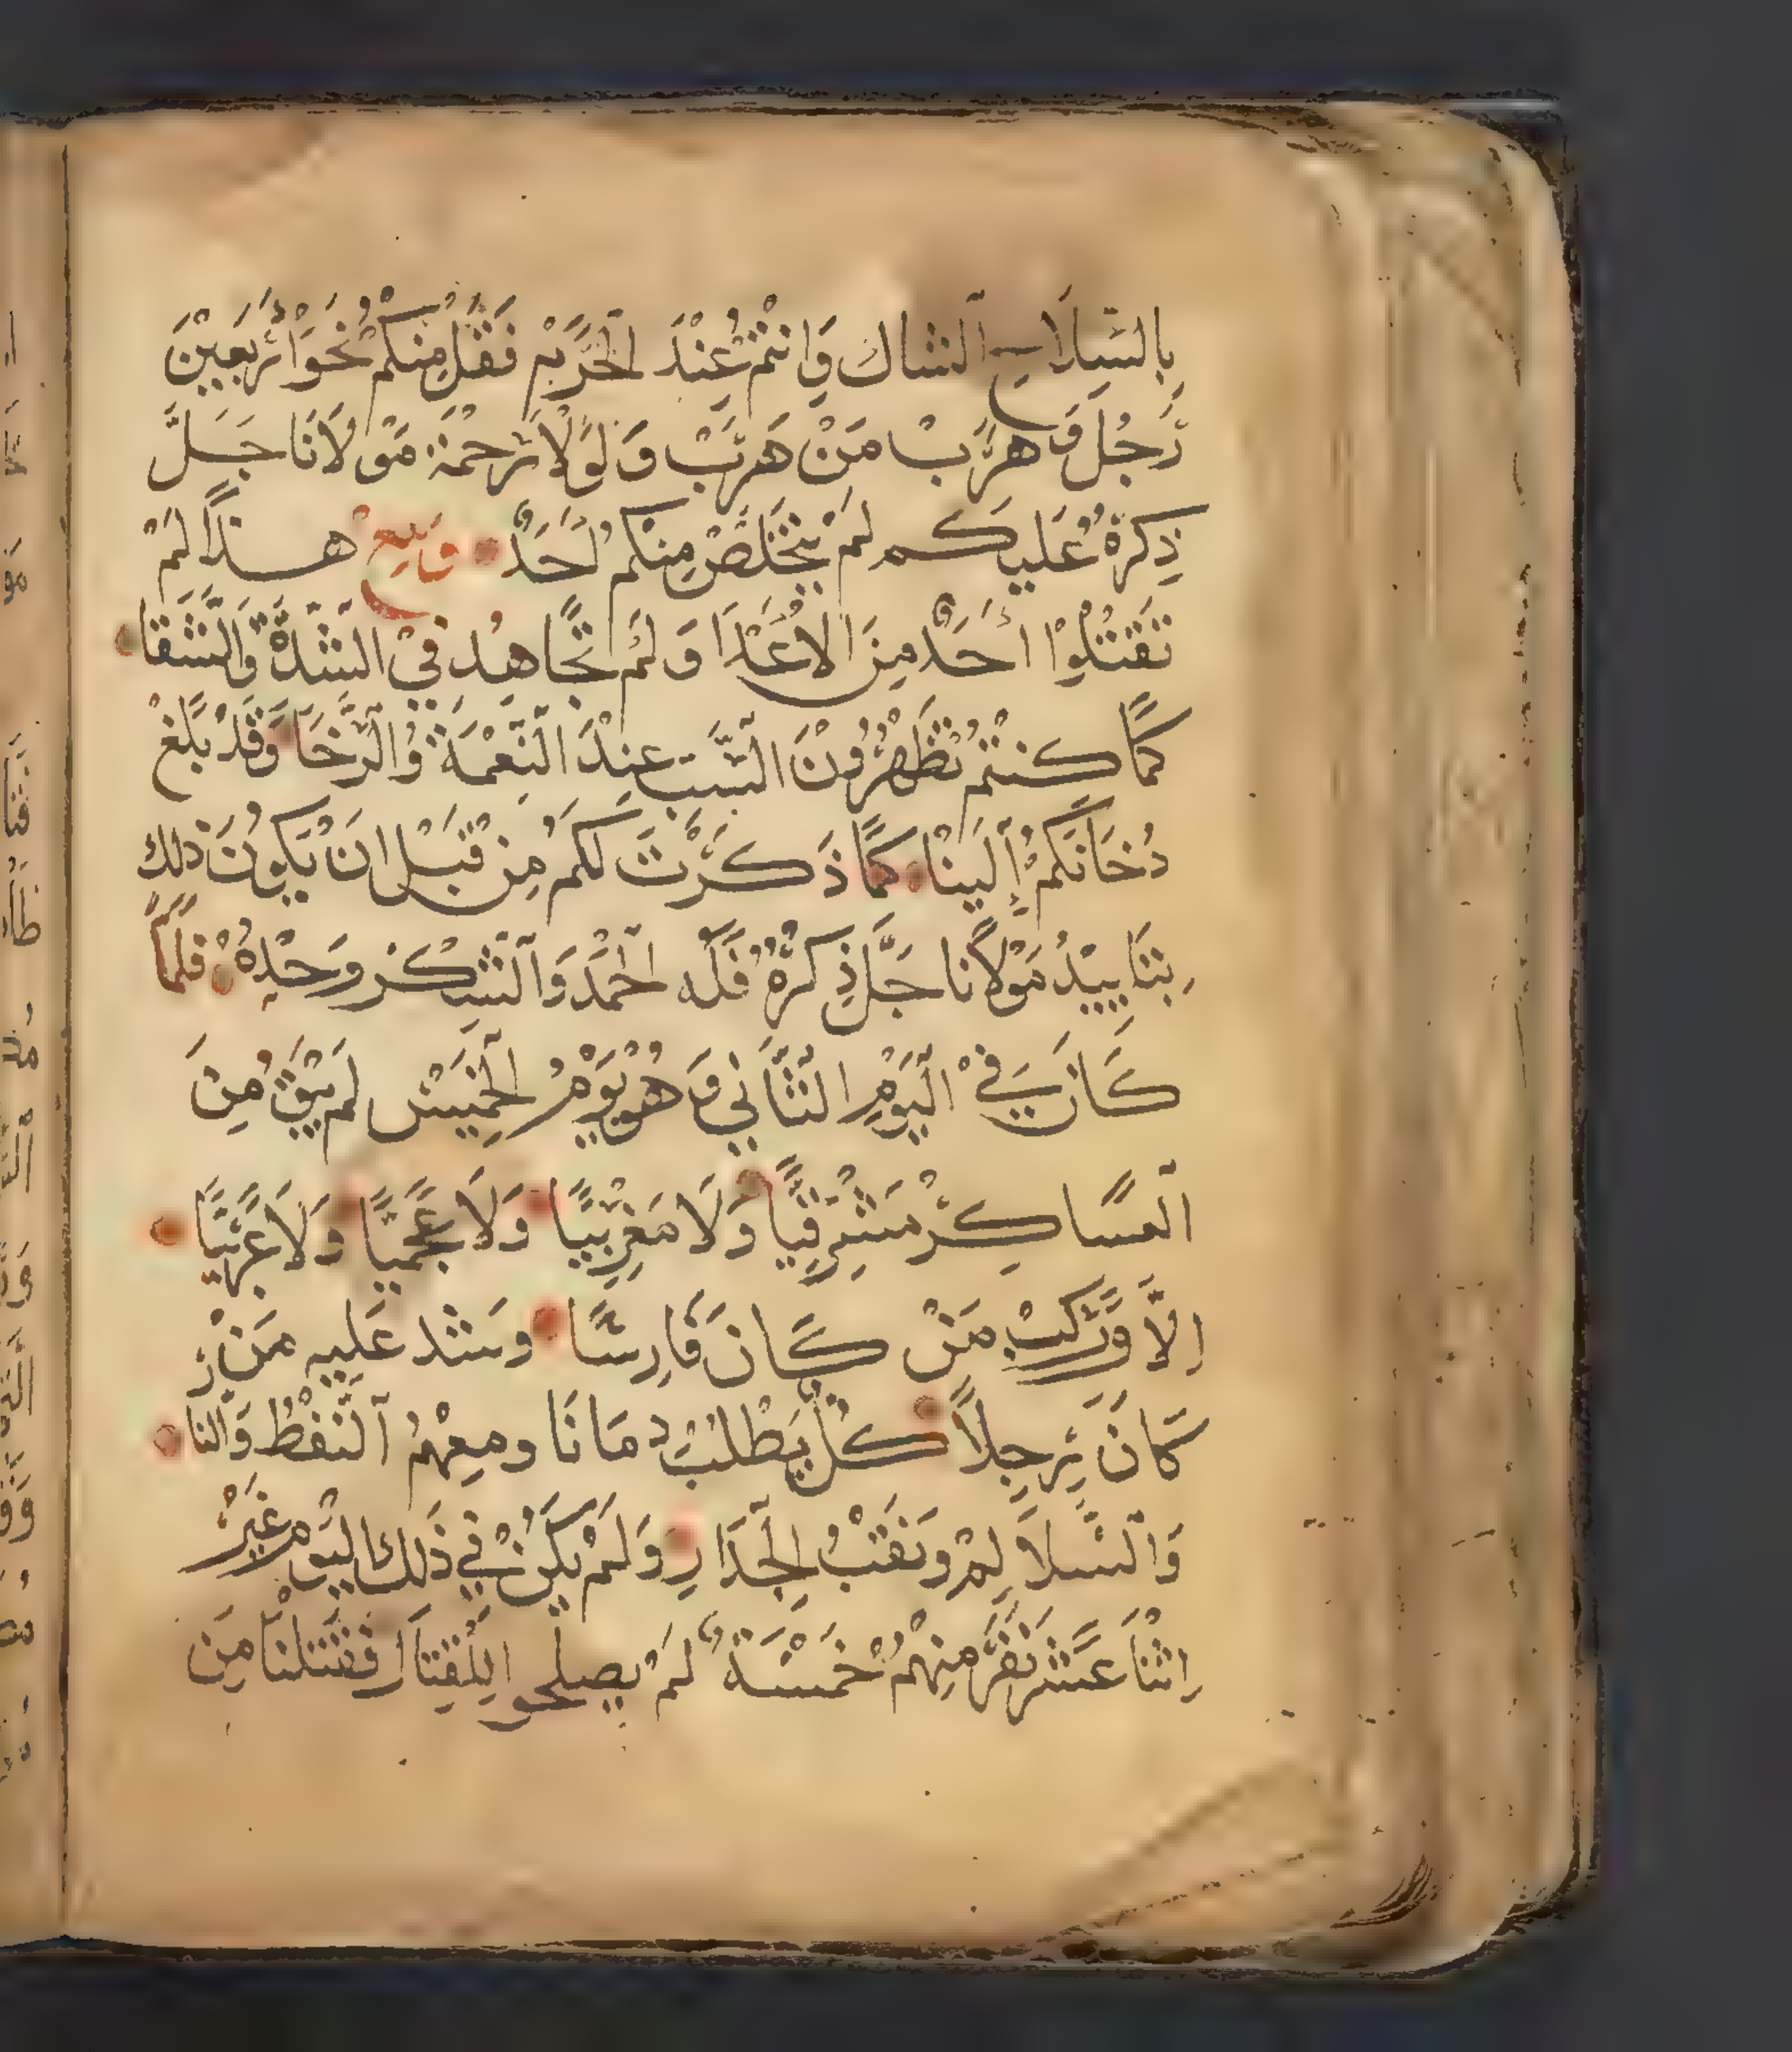 بِالسِّلَاحِ الشاك وَانتُمْ عِنْدَ الحَرْبِهْ فَقُتِلَ مِنكُمْ نَحْوَا أَرْبَعِيْنَ
رَجُل وَهَرَبْ مَنْ هَرَبْ وَلَوْلَا رَحْمَة مَوْلَانَا جَلَّ
ذِكرهُ عَليكُم لَمْ يتخَلَصْ مِنكُم أَحَدٌ وَمَع هذا لَمْ
تَقْتُلوْا أَحَدٌ مِنَ الأَعْدَا وَلَمْ تجَاهِدُ في الشِدَّة وَالشَقَا
كمَا كنتُم تُظهِرُوْنَ السَبَب عِنْدَ النِعْمَة وَالرَخَا وَقَدْ بَلَغْ
دُخَانَكُمْ إلَينَا كمَا ذَكَرْتُ لكُم مِن قَبْل انَ يَكوُنَ ذلك
بِتَايِيدْ مَوْلَانا جَلَّ ذِكرهُ فَلَه الحَمْدُ وَالشكر وَحْدِهُ فلمَا
كَانَ فيْ اليَوْمِ الثَّانِي وَهُو يَوْمُ الخَمِيْس لَم يَبْقَ مِنَ
العسَاكِرْ مَشْرِقِيًّا وَلَا مَغْرِبِيًّا وَلَا عَجَمِيًّا وَلَا عَرَبِيًّا
الَّا وَرَكبْ مَنْ كَانَ فَارِسًا وشد عَلِيهِ مَنْ
كَانَ رَجِلاً كلٌ يَطْلُبْ دمَانَا ومعهُمْ النَفْطُ وَالنار
وَالسَلَالِمْ وَنَقَبْ الجِدَارِ وَلَمْ يَكنْ في ذَلك اليَوْم غَيْر
اثْنَا عَشَر نَفَر مِنْهُمْ خَمْسَةُ لَمْ يصلحوا لِلقِتَال فَقَتَلنَا مِنَ